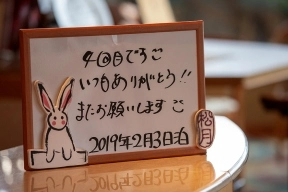 4回目でろご
いつもありがとう!!
またお願いします
2019年2月3日泊
松月